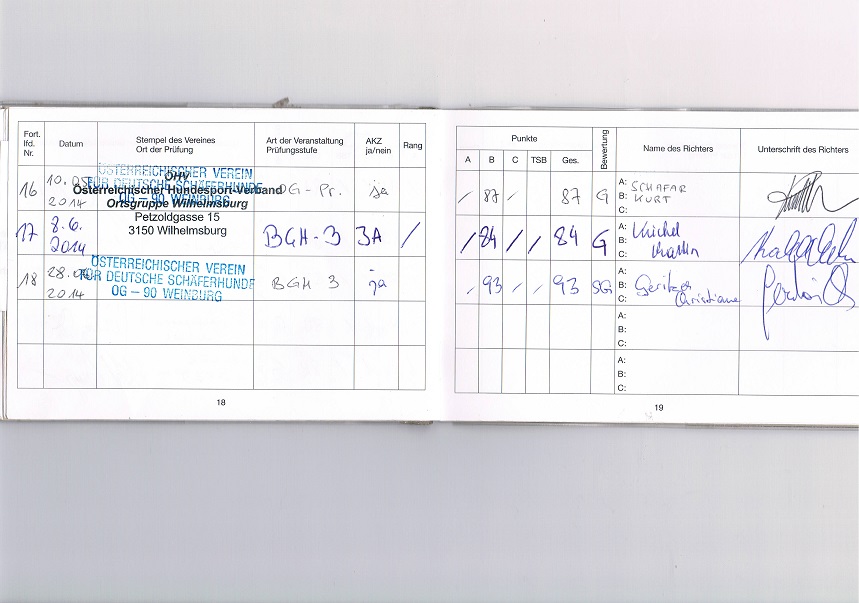 Fort. lfd. Nr.
Datum
Stempel des Vereines
Ort der Prüfung
Art der Veranstaltung
Prüfungsstufe
AKZ
ja/nein
Rang
16
10.
2014
ÖSTERREICHISCHER VEREIN
FÜR DEUTSCHE SCHÄFERHUNDE
OG – 90 WEINBURG
ÖHV
Österreichischer Hundesport-Verband
Ortsgruppe Wilhelmsburg
Petzoldgasse 15
3150 Wilhelmsburg
OG-Pr.
ja
17
8.6.
2014
BGH-3
JA
/
18
28.
2014
ÖSTERREICHISCHER VEREIN
FÜR DEUTSCHE SCHÄFERHUNDE
OG – 90 WEINBURG
BGH 3
ja
18
Punkte
A
B
C
TSB
Ges.
Bewertung
Name des Richters
Unterschrift des Richters
/ 87 / 87 G
A: SCHAFAR
B: KURT
C:
/ 84 / / 84 G
A: Michel
B: Martin
C:
/ 93 / / 93 SG
A:
B: Geritzer
C: Christiane
A:
B:
C:
A:
B:
C:
19